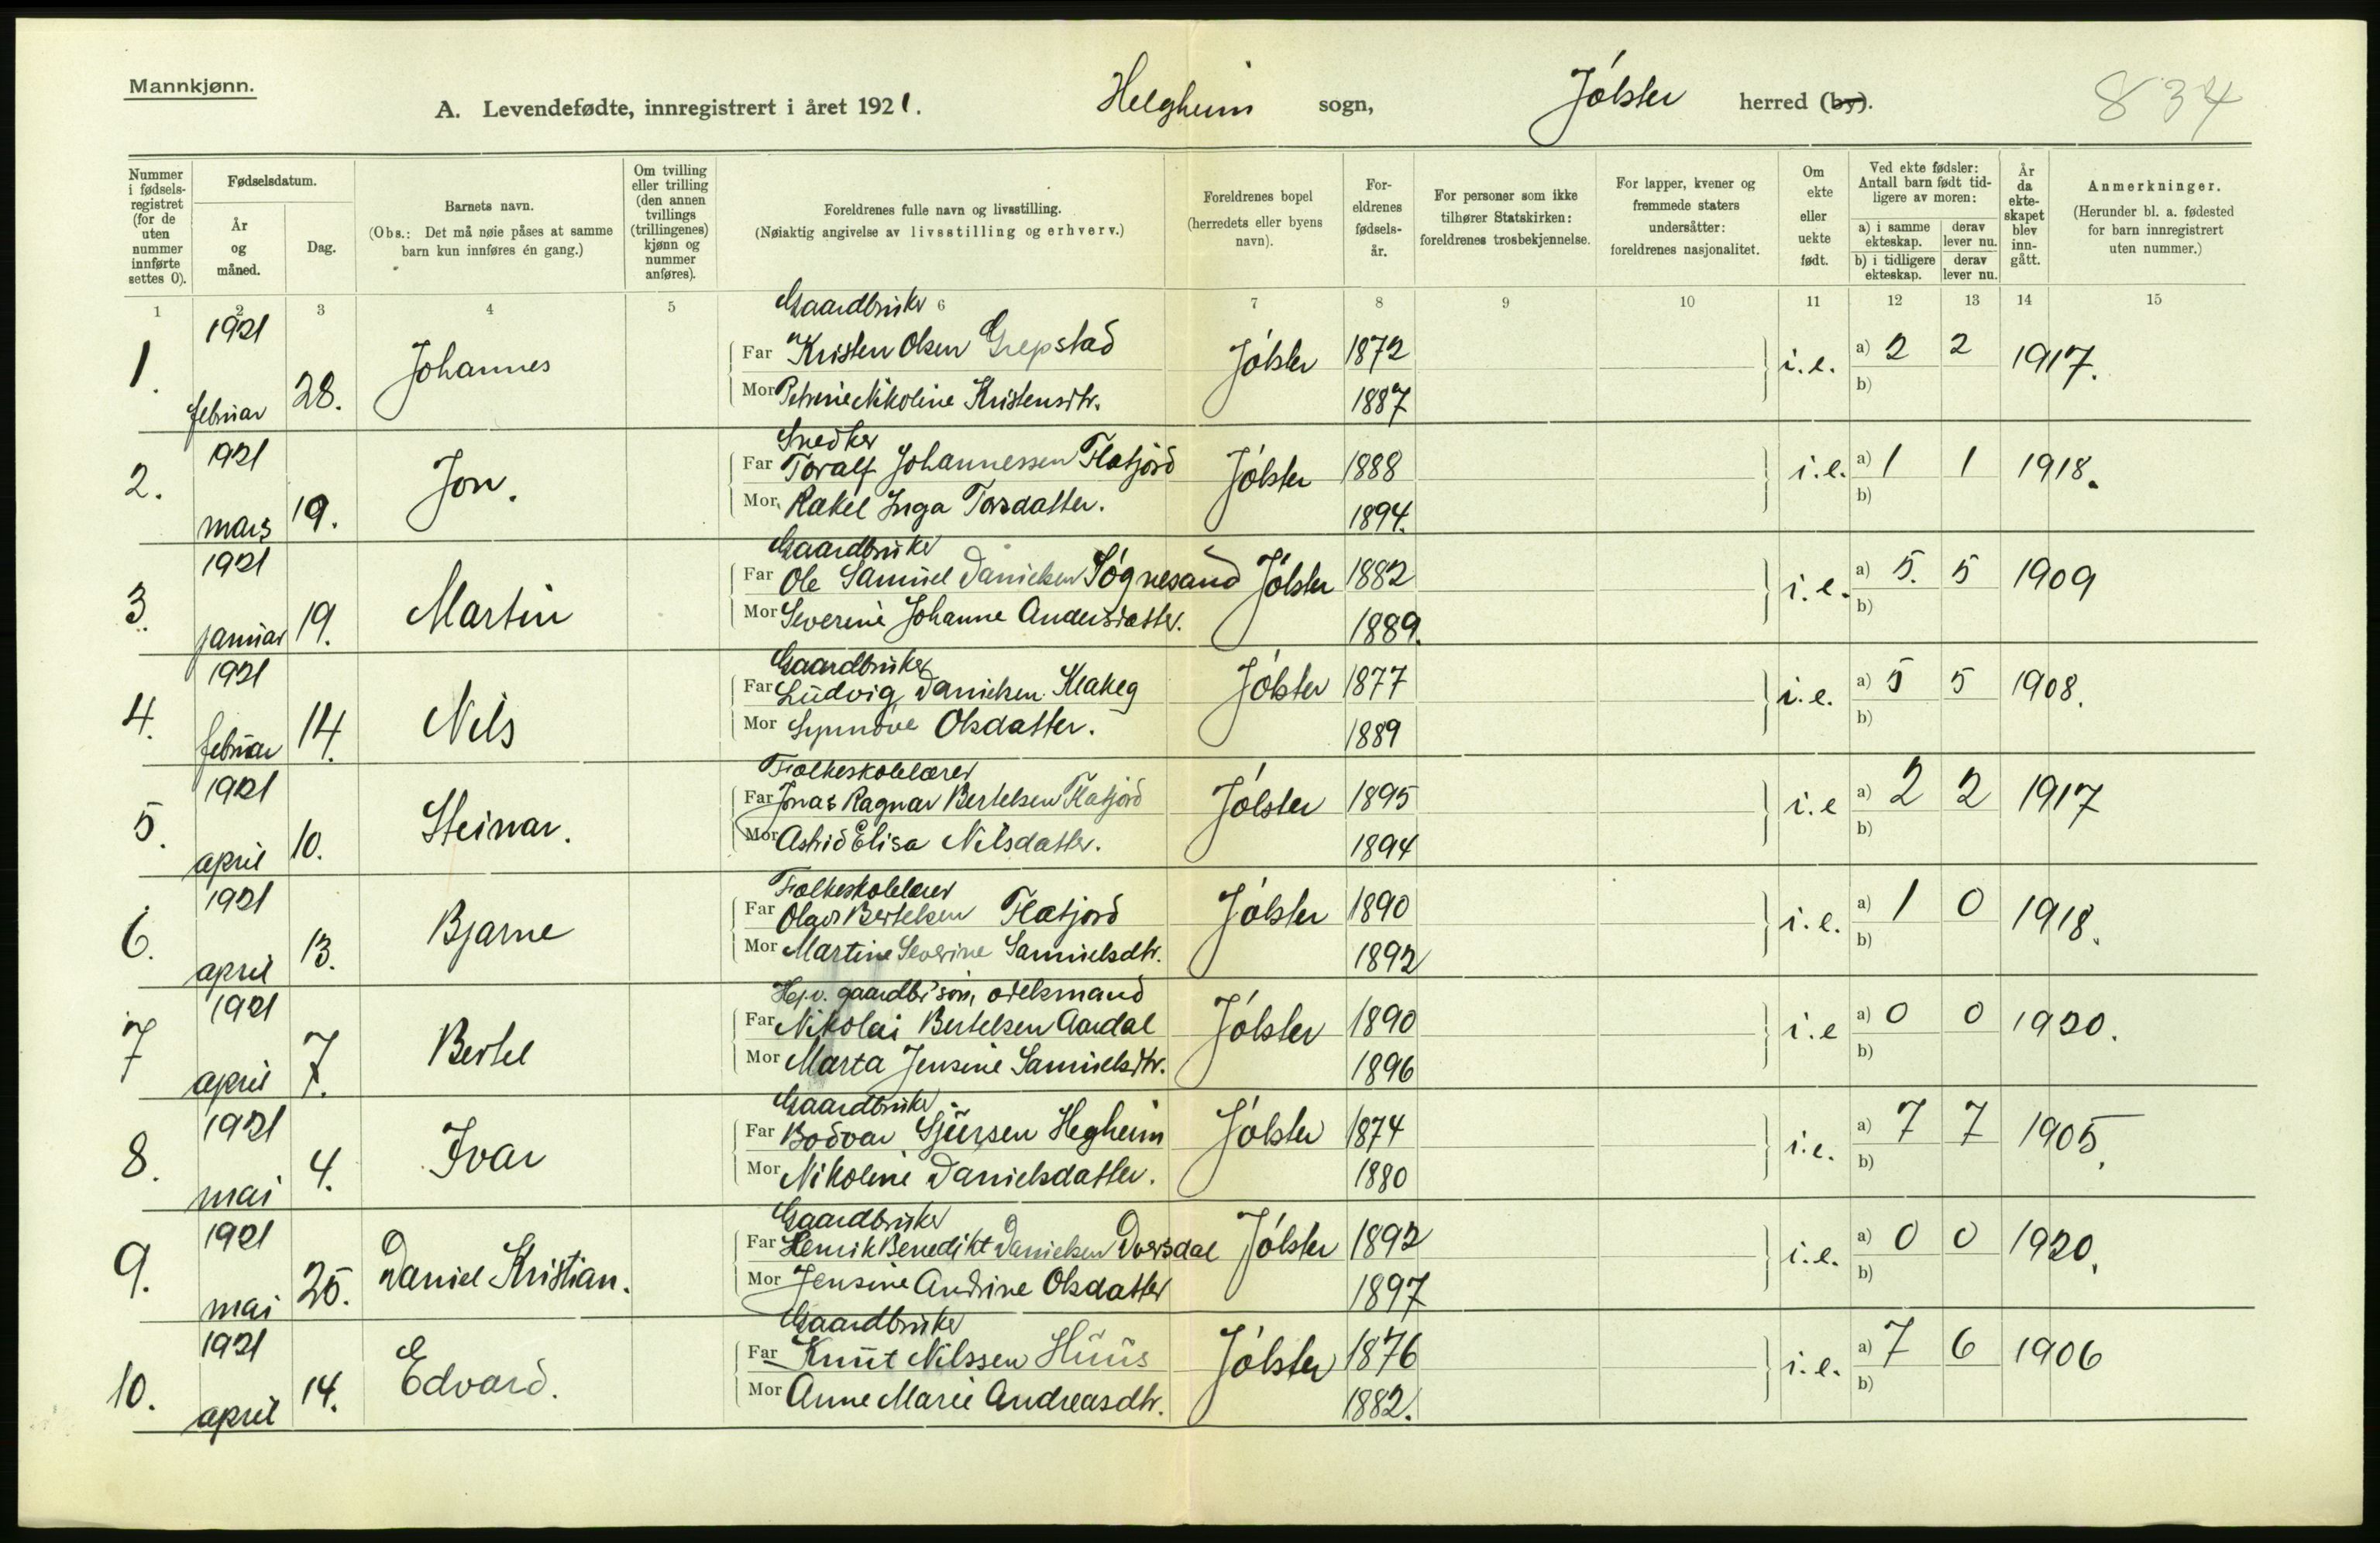 Mannkjønn.
A. Levendefødte, innregistrert i året 1921. Helgheim sogn, Jølster herred (by).
834
Nummer i fødsels-registret (for de uten nummer innførte settes 0).
Fødselsdatum.
År og måned.
Dag.
Barnets navn.
(Obs.: Det må nøie påses at samme barn kun innføres én gang.)
Om tvilling eller trilling (den annen tvillings (trillingenes) kjønn og nummer anføres).
Foreldrenes fulle navn og livsstilling.
(Nøiaktig angivelse av livsstilling og erhverv.)
Foreldrenes bopel (herredets eller byens navn).
For-eldrenes fødsels-år.
For personer som ikke tilhører Statskirken: foreldrenes trosbekjennelse.
For lapper, kvener og fremmede staters undersåtter: foreldrenes nasjonalitet.
Om ekte eller uekte født.
Ved ekte fødsler: Antall barn født tid-ligere av moren:
a) i samme ekteskap. derav lever nu.
b) i tidligere ekteskap. derav lever nu.
År da ekte-skapet blev inn-gått.
Anmerkninger.
(Herunder bl. a. fødested for barn innregistrert uten nummer.)
1 2 3 4 5 6 7 8 9 10 11 12 13 14 15
Gaardbruker
1. 1921 februar 28. Johannes Far Kristen Olsen Grepstad Jølster 1872 i.e. a) 2 2 1917.
Mor Petrine Nikoline Kristensdtr. 1887 b)
Snedker
2. 1921 mars 19. Jon. Far Toralf Johannessen Flatjord Jølster 1888 i.e. a) 1 1 1918.
Mor Rakel Inga Torsdatter. 1894. b)
Gaardbruker
3. 1921 januar 19. Martin Far Ole Samuel Danielsen Søgnesand Jølster 1882 i.e. a) 5. 5 1909
Mor Severine Johanne Andersdatter. 1889. b)
Gaardbruker
4. 1921 februar 14. Nils Far Ludvig Danielsen Klakeg Jølster 1877 i.e. a) 5 5 1908.
Mor Synnøve Olsdatter. 1889 b)
Folkeskolelærer
5. 1921 april 10. Steinar. Far Jonas Ragnar Bertelsen Flatjord Jølster 1895 i.e a) 2 2 1917
Mor Astrid Elisa Nilsdatter. 1894 b)
Folkeskolelærer
6. 1921 april 13. Bjarne Far Olav Bertelsen Flatjord Jølster 1890 i.e. a) 1 0 1918.
Mor Martine Severine Samuelsdtr. 1892 b)
Hj.v. gaardbr søn, odelsmand
7 1921 april 7. Bertel Far Nikolai Bertelsen Aardal Jølster 1890 i.e a) 0 0 1920.
Mor Marta Jensine Samuelsdtr. 1896 b)
Gaardbruker
8. 1921 mai 4. Ivar Far Bodvar Sjursen Hegheim Jølster 1874 i.e. a) 7 7 1905.
Mor Nikoline Danielsdatter. 1880 b)
Gaardbruker
9. 1921 mai 25. Daniel Kristian. Far Henrik Benedikt Danielsen Dvergsdal Jølster 1892 i.e. a) 0 0 1920.
Mor Jensine Andrine Olsdatter 1897 b)
Gaardbruker
10. 1921 april 14. Edvard. Far Knut Nilssen Huus Jølster 1876 i.e. a) 7 6 1906
Mor Anne Marie Andreasdtr. 1882. b)